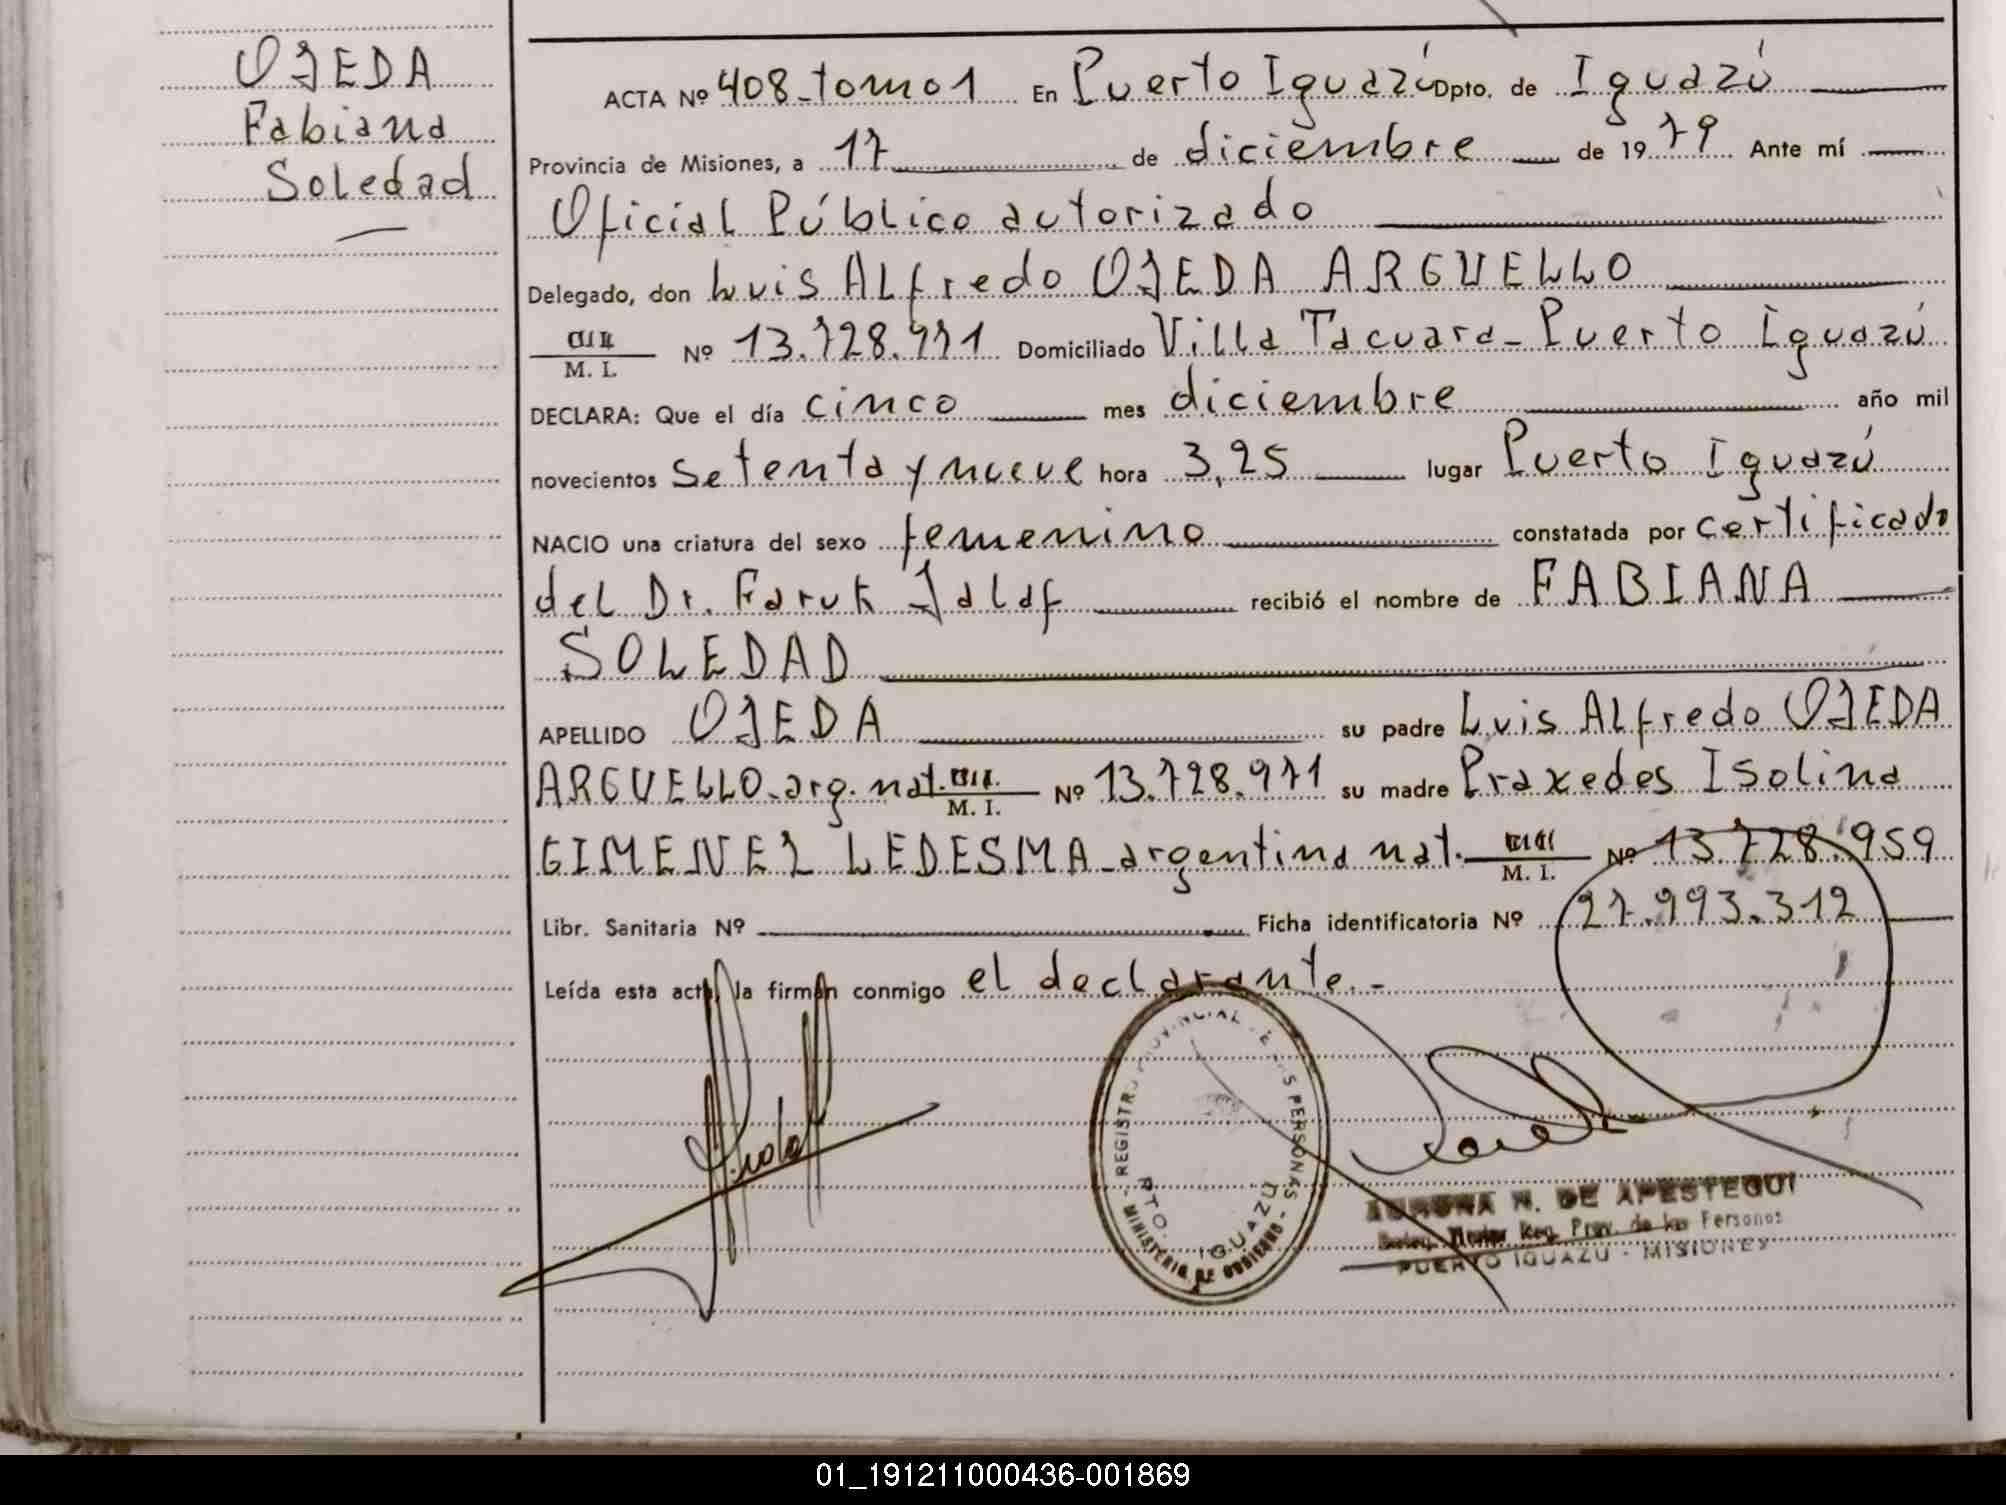 OJEDA
Fabiana
Soledad
ACTA Nº 408 - tomo 1 En Puerto Iguazú Dpto. de Iguazú
Provincia de Misiones, a 17 de diciembre de 1979 Ante mí
Oficial Público autorizado
Delegado, don Luis Alfredo OJEDA ARGUELLO
M. I. Nº 13.728.971 Domiciliado Villa Tacuara - Puerto Iguazú
DECLARA: Que el día cinco mes diciembre año mil
novecientos setenta y nueve hora 3,25 lugar Puerto Iguazú
NACIO una criatura del sexo femenino constatada por certificado
del Dr. Faruk Jalaf recibió el nombre de FABIANA
SOLEDAD
APELLIDO OJEDA su padre Luis Alfredo OJEDA
ARGUELLO - arg. nat. M. I. Nº 13.728.971 su madre Praxedes Isolina
GIMENEZ LEDESMA - argentina nat. M. I. Nº 13.728.959
Libr. Sanitaria Nº Ficha identificatoria Nº 27.993.312
Leída esta acta, la firman conmigo el declarante.-
REGISTRO PROVINCIAL DE LAS PERSONAS
PTO. IGUAZU
- MINISTERIO DE GOBIERNO -
N. DE APESTEGUI
Titular Reg. Prov. de las Personas
PUERTO IGUAZU - MISIONES
01_191211000436-001869